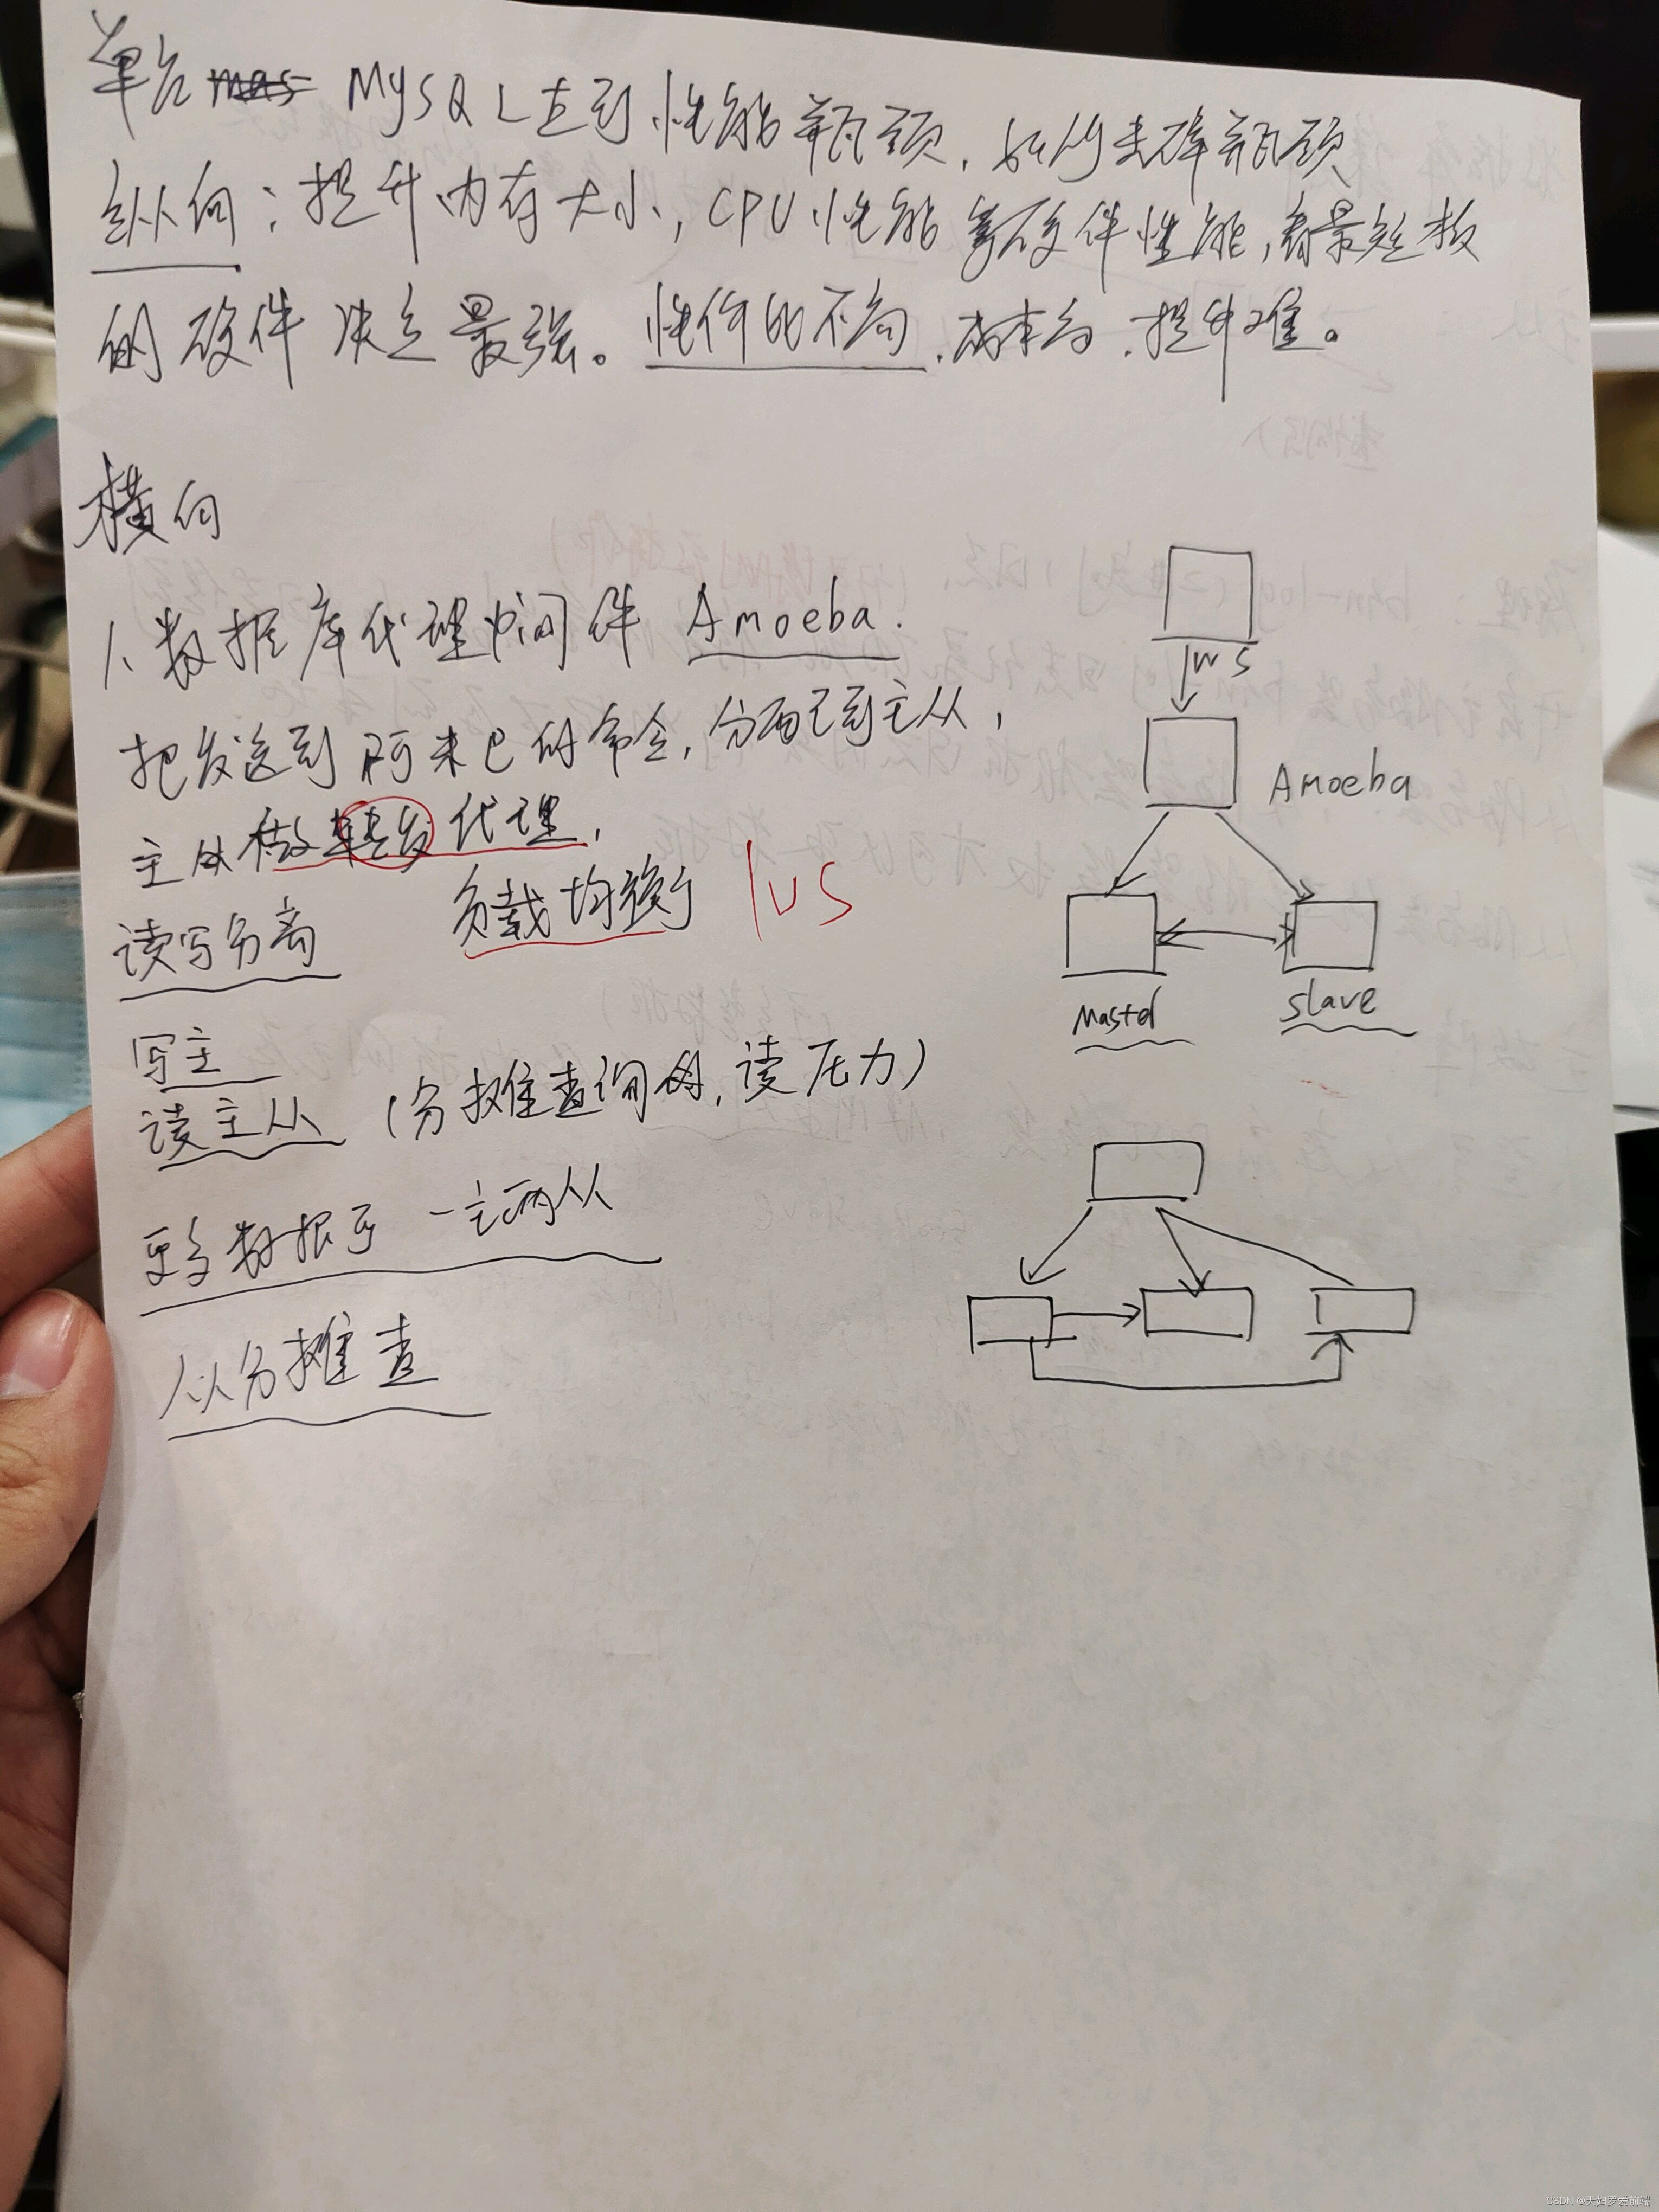 单台 MySQL 达到性能瓶颈，如何去破瓶颈
纵向：提升内存大小，CPU性能等硬件性能，看最短板
的硬件决定最强。性价比不高，成本高，提升难。
横向
1、数据库代理中间件 Amoeba.
把发送到阿米巴的命令，分配到主从，
主从做转发代理，
负载均衡 lvs
读写分离
写主
读主从（分摊查询的，读压力）
更多数据了 一主两从
从分摊查
lvs
Amoeba
Master
slave
CSDN @夫妇罗爱前端